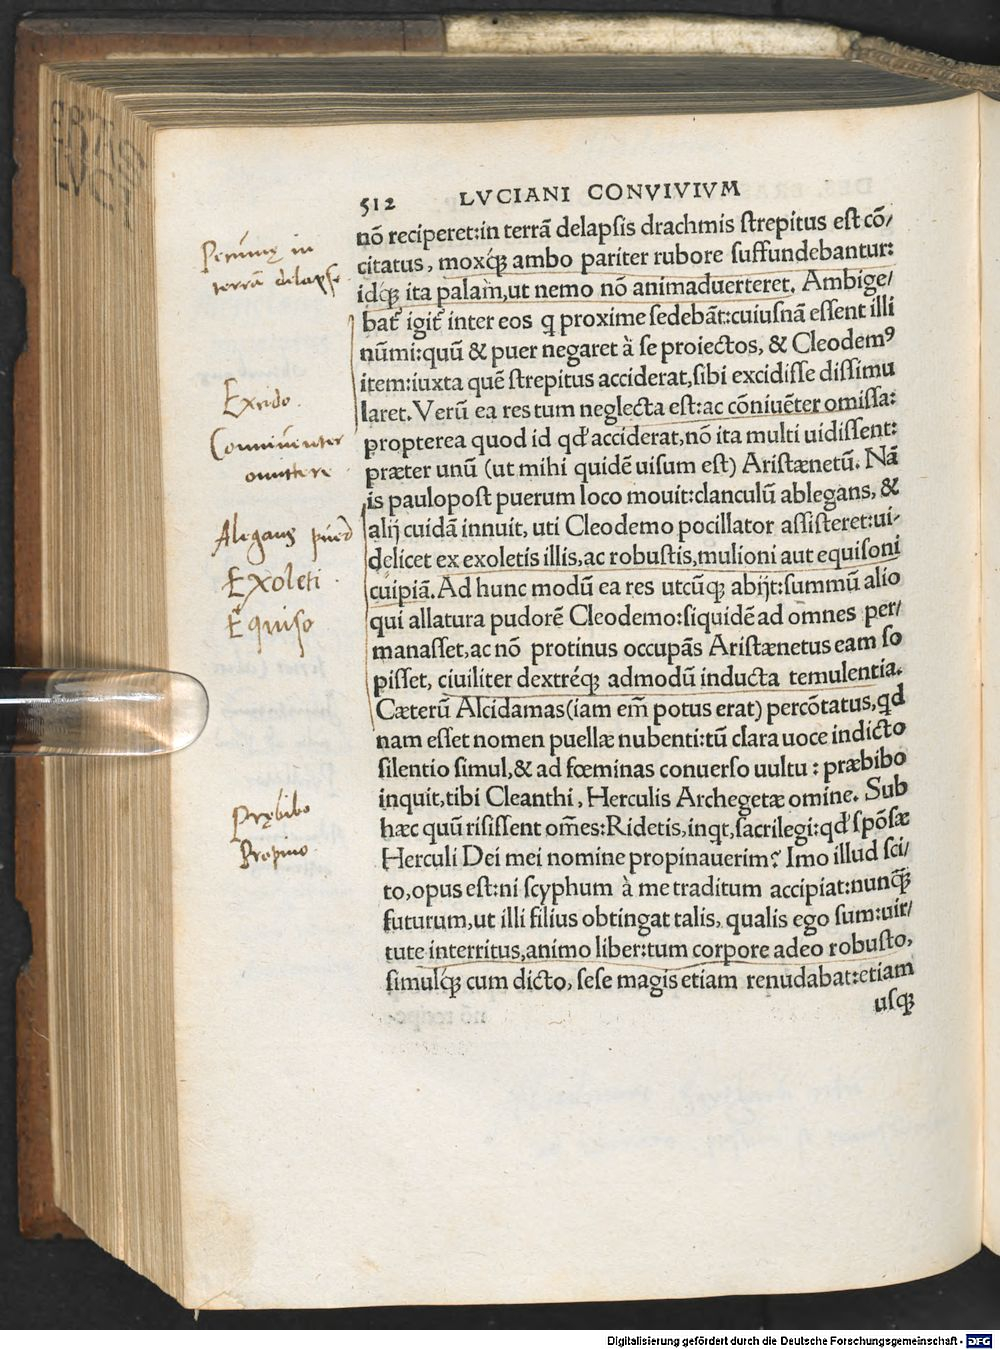 512 LVCIANI CONVIVIVM
nō reciperet:in terrā delapsis drachmis strepitus est cō/
citatus, moxq́; ambo pariter rubore suffundebantur:
idq́; ita palam,ut nemo nō animaduerteret. Ambige/
bat̄ igit̄ inter eos q proxime sedebāt:cuiusnā essent illi
nūmi:quū & puer negaret à se proiectos, & Cleodemꝰ
item:iuxta quē strepitus acciderat,sibi excidisse dissimu
laret. Verū ea res tum neglecta est:ac cōniuēter omissa:
propterea quod id qd' acciderat,nō ita multi uidissent:
præter unū (ut mihi quidē uisum est) Aristænetū. Nā
is paulopost puerum loco mouit:clanculū ablegans, &
alij cuidā innuit, uti Cleodemo pocillator assisteret:ui-
delicet ex exoletis illis,ac robustis,mulioni aut equisoni
cuipiā. Ad hunc modū ea res utcūq; abijt:summū alio
qui allatura pudorē Cleodemo:siquidē ad omnes per/
manasset,ac nō protinus occupās Aristænetus eam so
pisset, ciuiliter dextréq; admodū inducta temulentia.
Cæterū Alcidamas(iam em̄ potus erat) percōtatus,qd
nam esset nomen puellæ nubenti:tū clara uoce indicto
silentio simul,& ad fœminas conuerso uultu : præbibo
inquit,tibi Cleanthi, Herculis Archegetæ omine. Sub
hæc quū risissent om̄es:Ridetis,inqt,sacrilegi:qd' spōsæ
Herculi Dei mei nomine propinauerim? Imo illud sci/
to,opus est:ni scyphum à me traditum accipiat:nunq̄;
futurum,ut illi filius obtingat talis, qualis ego sum:uir/
tute interritus,animo liber:tum corpore adeo robusto,
simulq́; cum dicto, sese magis etiam renudabat:etiam
usq;
Pecunię in
terrā delapsę
Excido.
Conniuenter
omittere
Alegans puerū
Exoleti
Equiso
Prębibo
Propino.
ERAS
LVCI
Digitalisierung gefördert durch die Deutsche Forschungsgemeinschaft - DFG